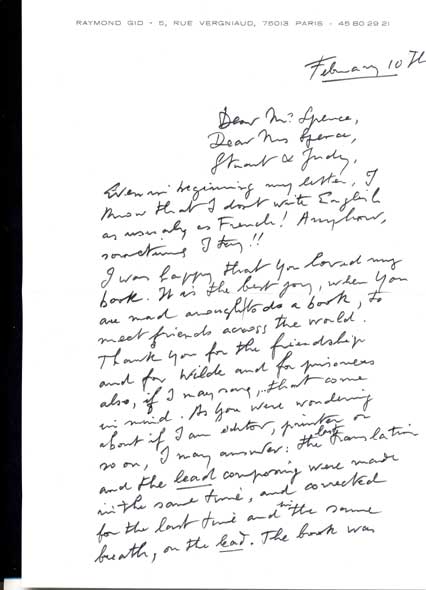 RAYMOND GID - 5, RUE VERGNIAUD, 75013 PARIS - 45 80 29 21
February 10th
Dear Mr. Spence,
Dear Mrs Spence,
Stuart & Judy,
Even in beginning my letter, I
know that I dont write English
as usualy as French! Anyhow,
sometimes I try!!
I was happy that you loved my
book. It is the best joy, when you
are mad anought to do a book, to
meet friends across the world.
Thank you for the friendship
and for Wilde and for prisoners
also, if I may say, that come
in mind. As you were wondering
about if I am editor, printer or
so on, I may answer: the last translation
and the lead composing were made
in the same time, and corrected
for the last time and in the same
breath, on the lead. The book was